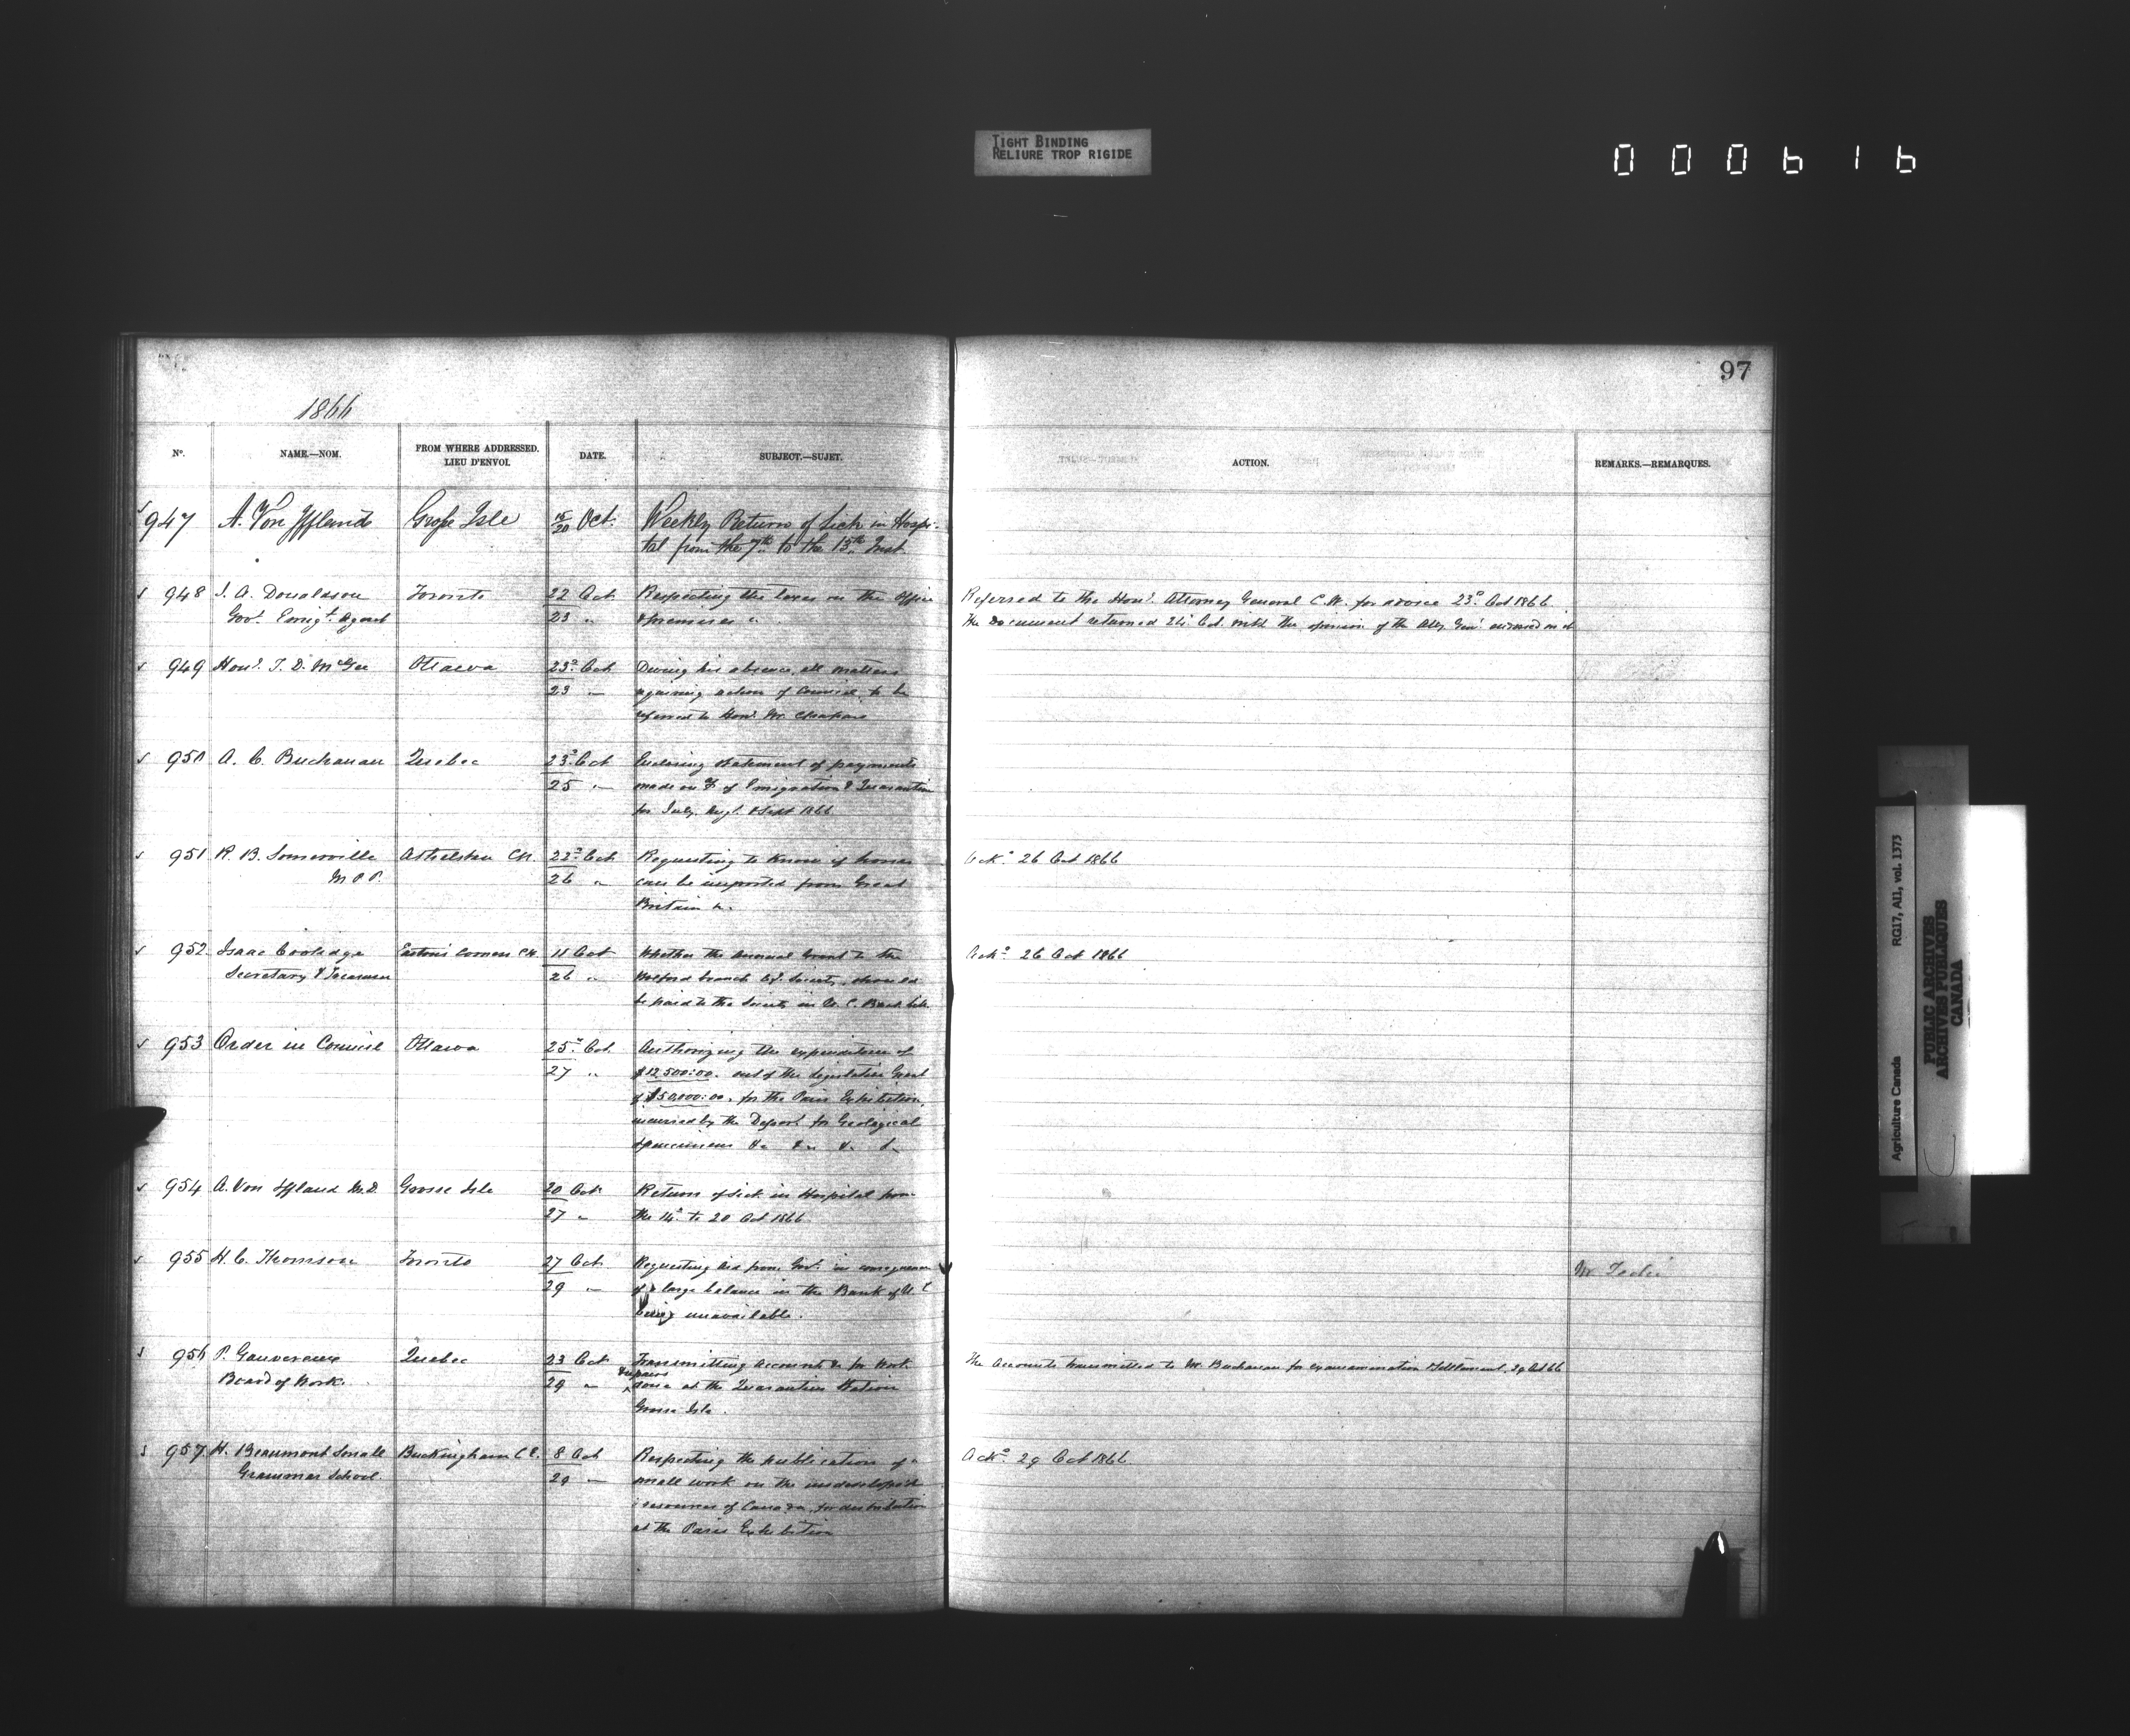 TIGHT BINDING
RELIURE TROP RIGIDE
000616
97
1866
No.
NAME.—NOM.
FROM WHERE ADDRESSED.
LIEU D'ENVOI.
DATE.
SUBJECT.—SUJET.
ACTION.
REMARKS.—REMARQUES.
947 A. Von Iffland Grosse Isle 15/20 Oct. Weekly Return of Sick in Hospi-
tal from the 7th to the 13th Inst
948 J. A. Donaldson Toronto 22 Oct Respecting the taxes on the Office
Govt. Emigt. Agent 23 " premises
Referred to the Honl. Attorney General C.W. for advice 23d Oct 1866
The Document returned 24 Oct. with the opinion of the Atty Genl. endorsed on it
949 Honl. T. D. McGee Ottawa 23d Oct During his absence, all matters
23 " requiring action of Council to be
referred to Honl. Mr. Chapais
950 A. C. Buchanan Quebec 23d Oct Enclosing statement of payments
25 " made on of Emigration & Quarantine
for July, Augt. & Sept 1866
951 R. B. Somerville Athelstan 22d Oct Requesting to know if horses
M.P.P. 26 " can be imported from Great
Britain &c.
Ackd 26 Oct 1866
952 Isaac Coolidge Easton's Corners C.W. 11 Oct Whether the Annual Grant to the
Secretary & Treasurer 26 " Wolford branch Society, should
be paid to the Society in U. C. Bank bills
Ackd 26 Oct 1866
953 Order in Council Ottawa 25d Oct. Authorizing the expenditure of
27 " $12,500:00. out of the Legislative Grant
of $50,000:00. for the Paris Exhibition,
incurred by the Depart. for Geological
Specimens &c &c &c &c
954 A. Von Iffland M.D. Grosse Isle 20 Oct Return of Sick in Hospital from
27 " the 14d to 20 Oct 1866
955 H. C. Thomson Toronto 27 Oct Requesting Aid from Govt. in consequence
29 " of large balance in the Bank of U C
being unavailable.
956 P. Gauvreau Quebec 23 Oct Transmitting Accounts &c for Work
repairs
Board of Works. 29 " done at the Quarantine Station
Grosse Isle.
The Accounts transmitted to Mr. Buchanan for examination & Settlement. 29 Oct 66
957 H. Beaumont Small Buckingham C E. 8 Oct Respecting the publication of a
Grammar School. 29 " small work on the undeveloped
resources of Canada, for distribution
at the Paris Exhibition
Ackd 29 Oct 1866
Agriculture Canada RG17, AII, vol. 1373
PUBLIC ARCHIVES
ARCHIVES PUBLIQUES
CANADA